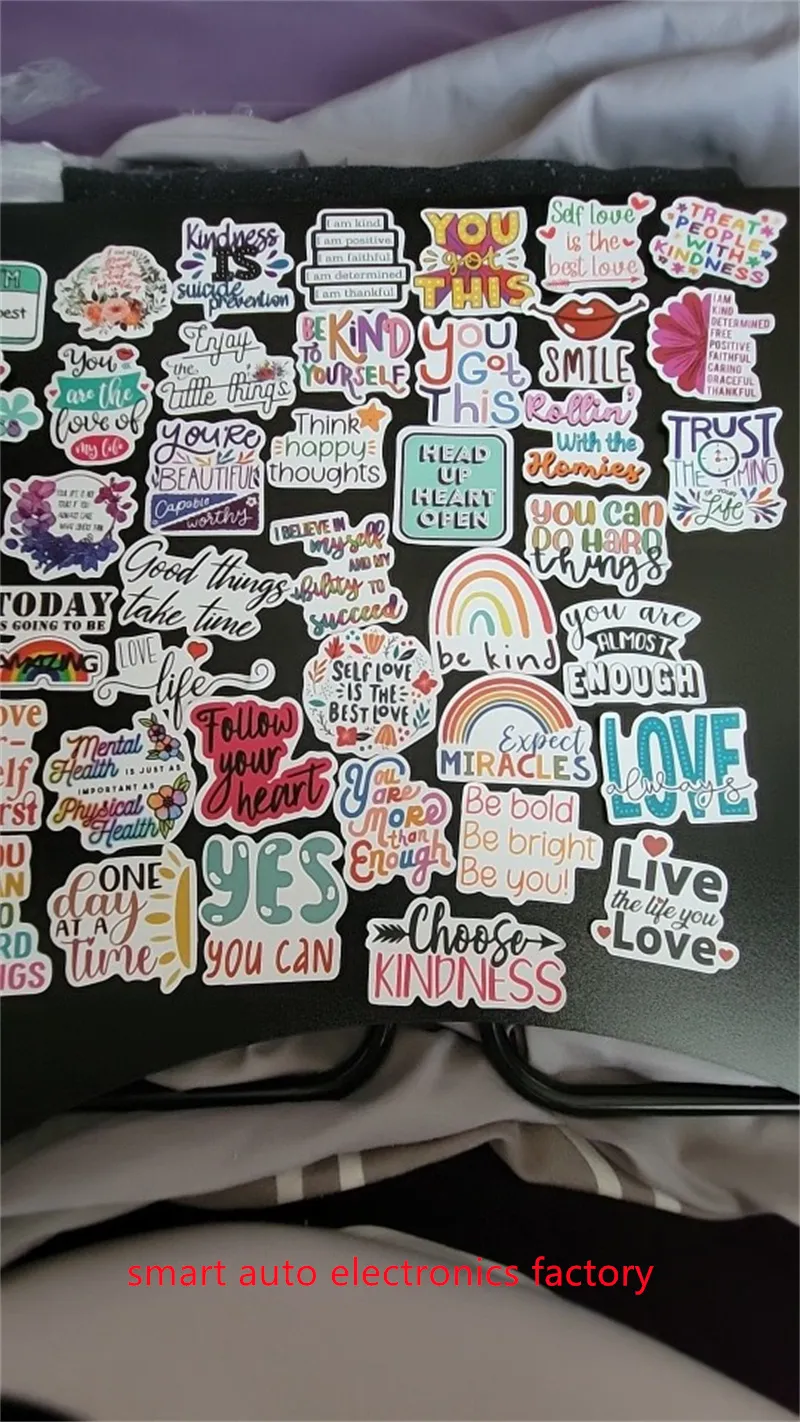 M
best
Kindness
IS
suicide
prevention
I am kind
I am positive
I am faithful
I am determined
I am thankful
YOU
got
THIS
Self love
is the
best love
TREAT
PEOPLE
WITH
KINDNESS
You
are the
love of
my life
Enjoy
the
little things
BE KIND
TO
YOURSELF
YOU
GoT
THiS
SMILE
I AM
KIND
DETERMINED
FREE
POSITIVE
FAITHFUL
CARING
GRACEFUL
THANKFUL
YOU'RE
BEAUTIFUL
Capable
worthy
Think
happy
thoughts
HEAD
UP
HEART
OPEN
Rollin'
With the
Homies
TRUST
THE TIMING
OF YOUR
Life
Good things
take time
I BELIEVE IN
myself
AND MY
ability TO
succeed
YOU CAN
DO HARD
things
TODAY
IS GOING TO BE
AMAZING
LOVE
life
SELF LOVE
IS THE
BEST LOVE
be kind
you are
ALMOST
ENOUGH
ove
elf
rst
Mental
Health IS JUST AS
IMPORTANT AS
Physical
Health
Follow
your
heart
You
ARE
MoRe
than
Enough
Expect
MIRACLES
LOVE
always
OU
AN
O
RD
NGS
ONE
day
AT A
time
YES
YOU CAN
Be bold
Be bright
Be you!
Choose
KINDNESS
Live
the life you
Love
smart auto electronics factory